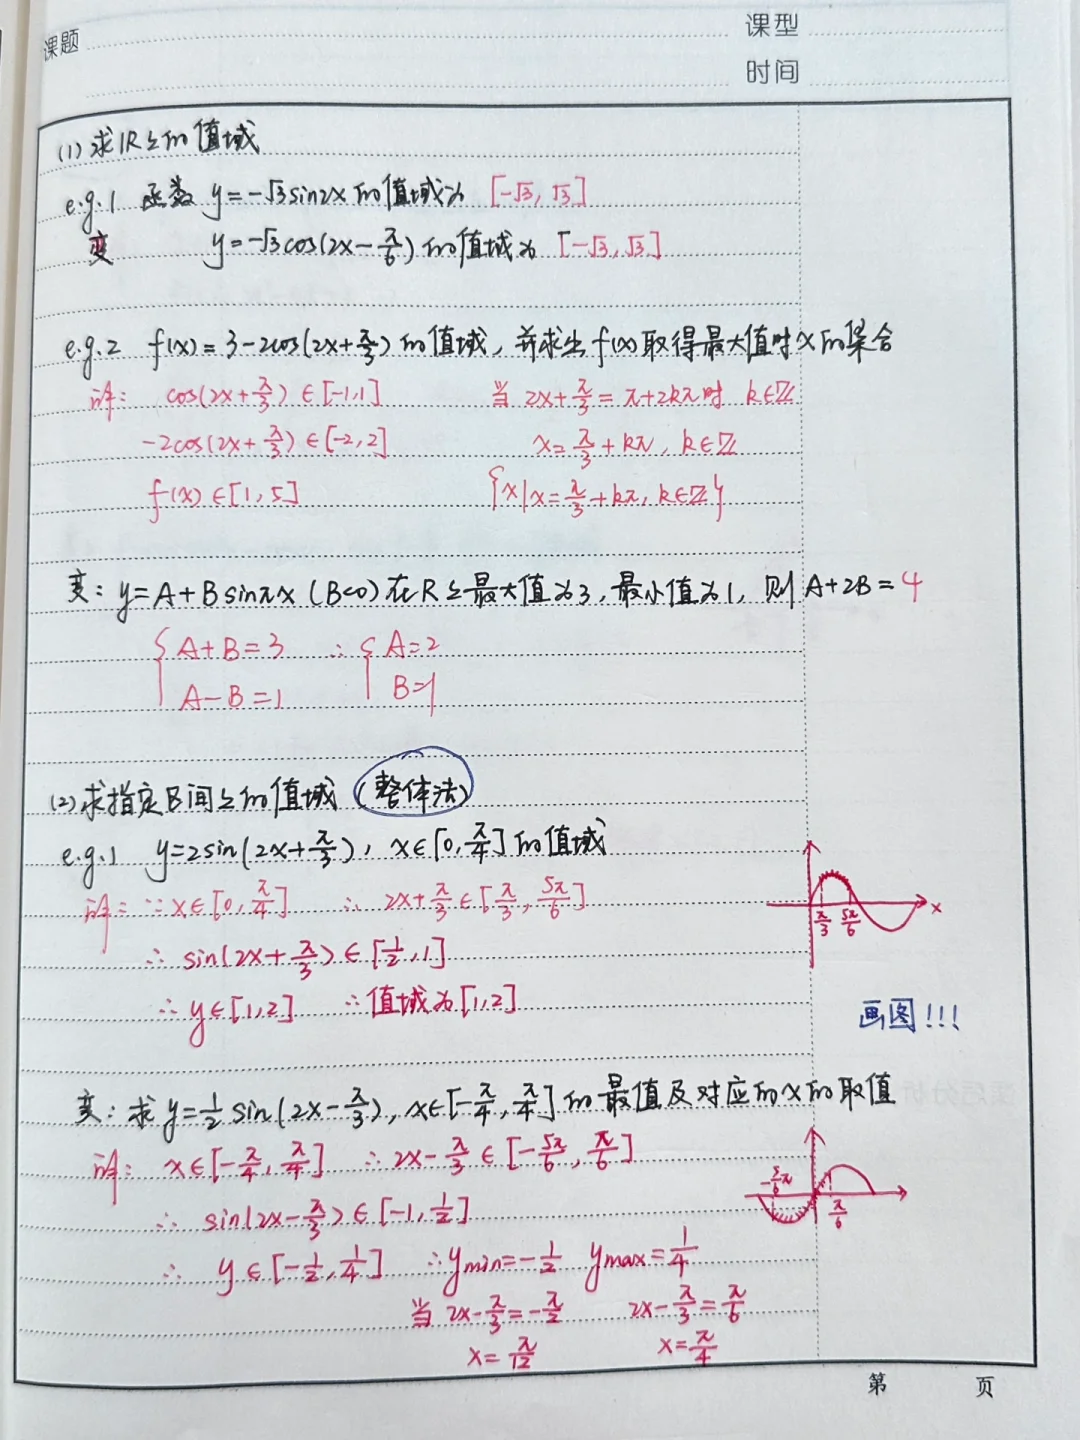 课题
课型
时间
(1) 求R上的值域
e.g.1 函数 y=-√3sin2x的值域为 [-√3, √3]
变 y=-√3cos(2x-π/6)的值域为 [-√3, √3]
e.g.2 f(x)=3-2cos(2x+π/3)的值域, 并求出f(x)取得最大值时x的集合
解: cos(2x+π/3)∈[-1,1] 当 2x+π/3=π+2kπ时 k∈Z
-2cos(2x+π/3)∈[-2,2] x=π/3+kπ, k∈Z
f(x)∈[1,5] {x|x=π/3+kπ, k∈Z}
变: y=A+Bsinπx (B<0)在R上最大值为3, 最小值为1, 则A+2B=4
{A+B=3 ∴ {A=2
A-B=1 B=1
(2) 求指定区间上的值域 (整体法)
e.g.1 y=2sin(2x+π/3), x∈[0,π/4]的值域
解: ∵x∈[0,π/4] ∴ 2x+π/3∈[π/3, 5π/6]
∴ sin(2x+π/3)∈[1/2,1]
∴ y∈[1,2] ∴值域为[1,2]
x
π/3 5π/6
画图!!!
变: 求y=1/2 sin(2x-π/3), x∈[-π/4, π/4]的最值及对应的x的取值
解: x∈[-π/4, π/4] ∴2x-π/3∈[-5π/6, π/6]
∴ sin(2x-π/3)∈[-1, 1/2]
∴ y∈[-1/2, 1/4] ∴ymin=-1/2 ymax=1/4
当 2x-π/3=-π/2 2x-π/3=π/6
x=π/12 x=π/4
-5/6π
π/6
第 页